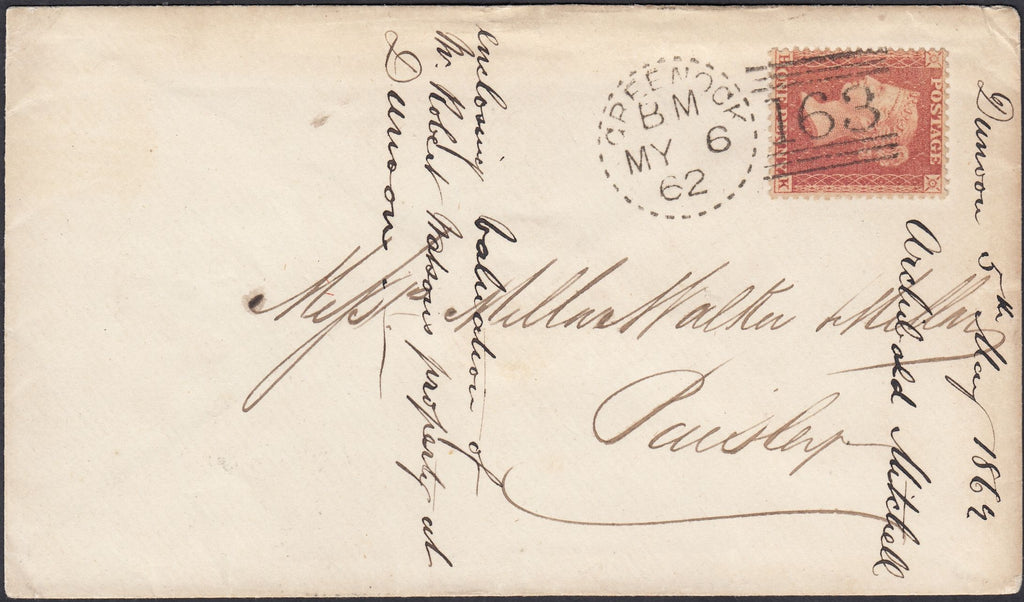 GREENOCK
BM
MY 6
62
163
POSTAGE
Messrs Millar Walker & Millar
Paisley
Dunoon 5th May 1862
Archibald Mitchell
enclosing valuation of
Mr. Robert Watsons property at
Dunoon.